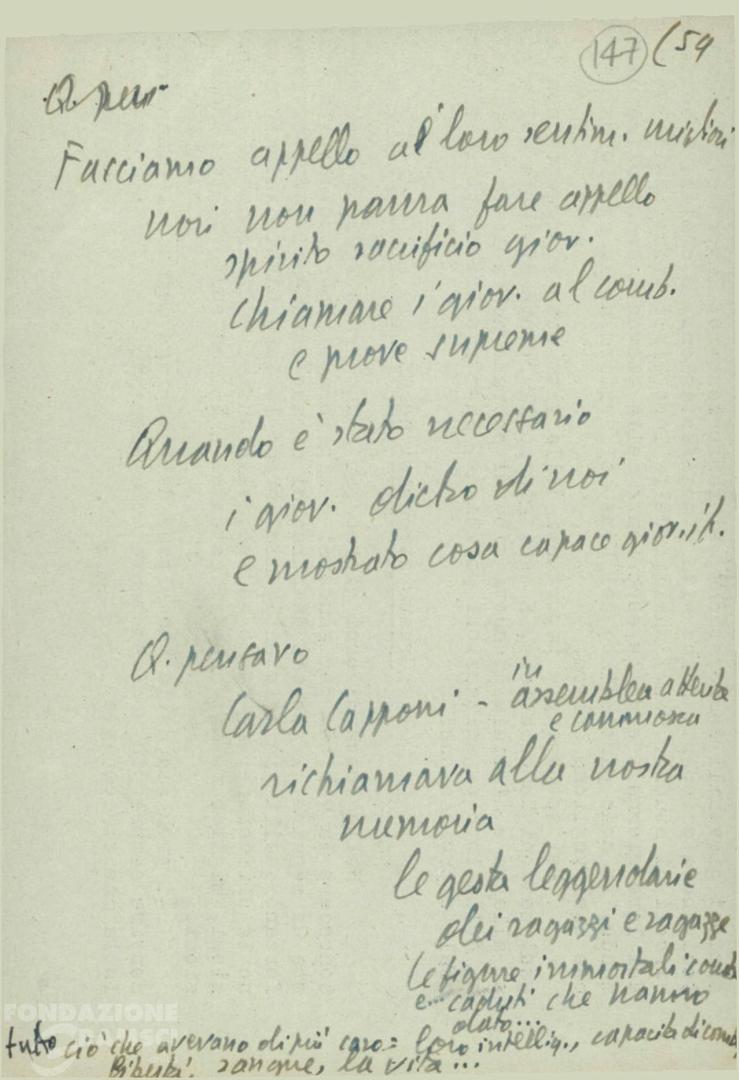 147 (54
Q. pens
Facciamo appello al loro sentim. migliori
noi non paura fare appello
spirito sacrificio giov.
Chiamare i giov. al comb.
e prove supreme
Quando è stato necessario
i giov. dietro di noi
e mostrato cosa capace giov. it.
Q. pensavo
Carla Capponi - in assemblea attenta
e commossa
richiamava alla nostra
memoria
le gesta leggendarie
dei ragazzi e ragazze
le figure immortali
e caduti che hanno
dato...
tutto ciò che avevano di più caro = loro intellig., capacità di comb,
libertà, sangue, la vita...
FONDAZIONE